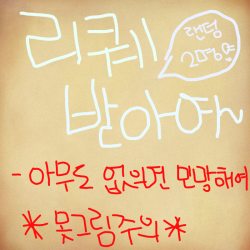 리퀘
랜덤
받아여~
- 아무도 없으면 민망해여
*못그림주의*